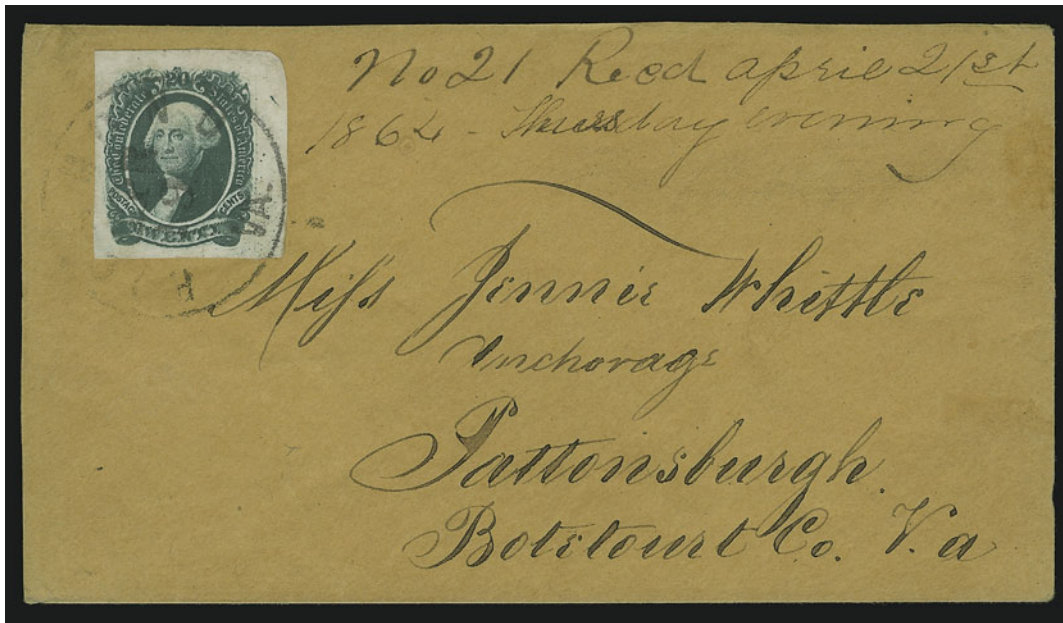 No 21 Recd april 21st
1864 - Thursday evening
20
The Confederate States of America
POSTAGE CENTS
TWENTY
VA.
Miss Jennie Whittle
Anchorage
Pattonsburgh.
Botetourt Co. V.a